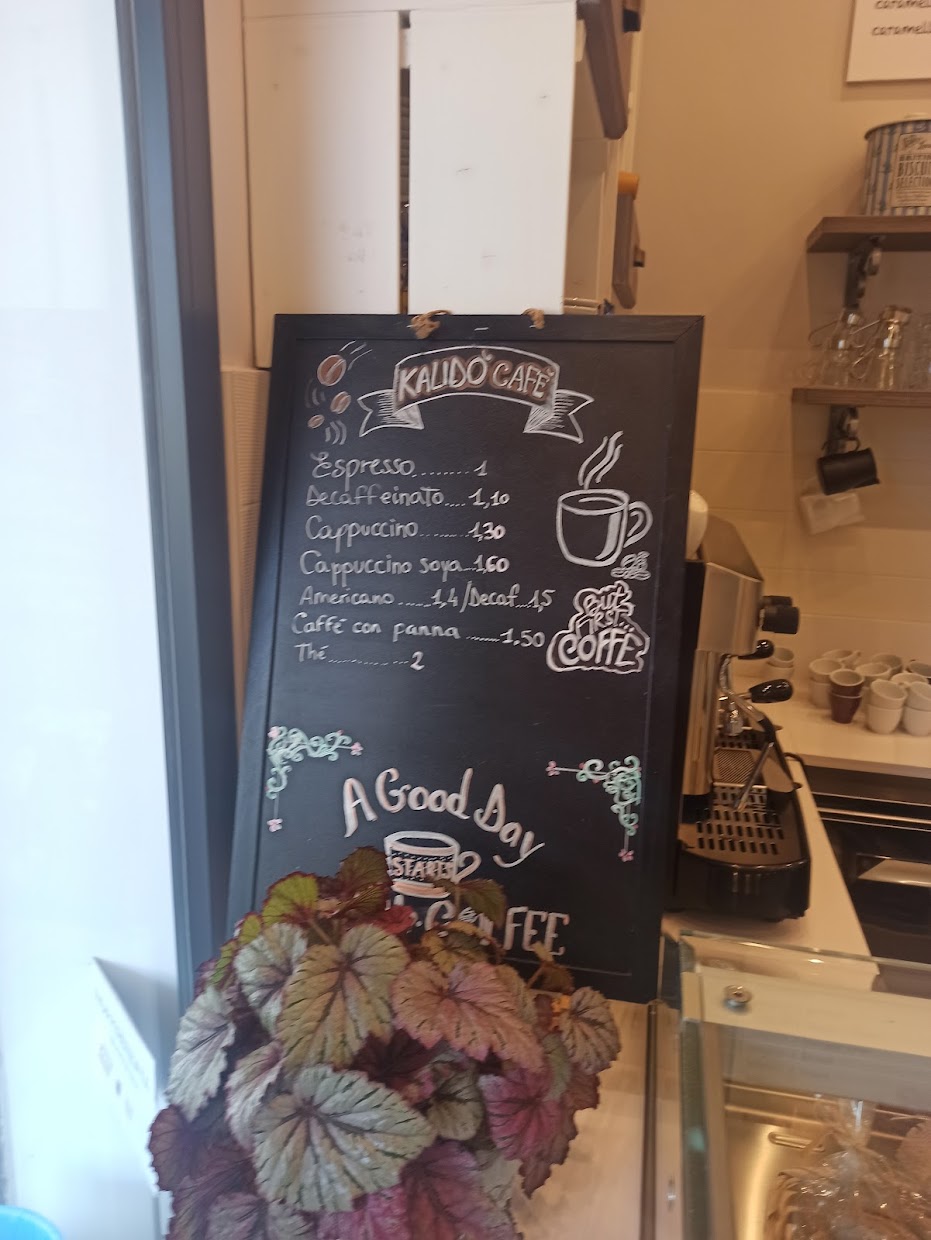 caramell
caramell
BRITI
BISCUI
SELECTIO
KALIDÓ CAFÈ
Espresso........1
Decaffeinato....1,10
Cappuccino........1,30
Cappuccino soya...1,60
Americano......1,4/Decaf...1,5
Caffè con panna.......1.50
Thé............2
But
First...
COFFÈ
A Good Day
STARTS
COFFEE